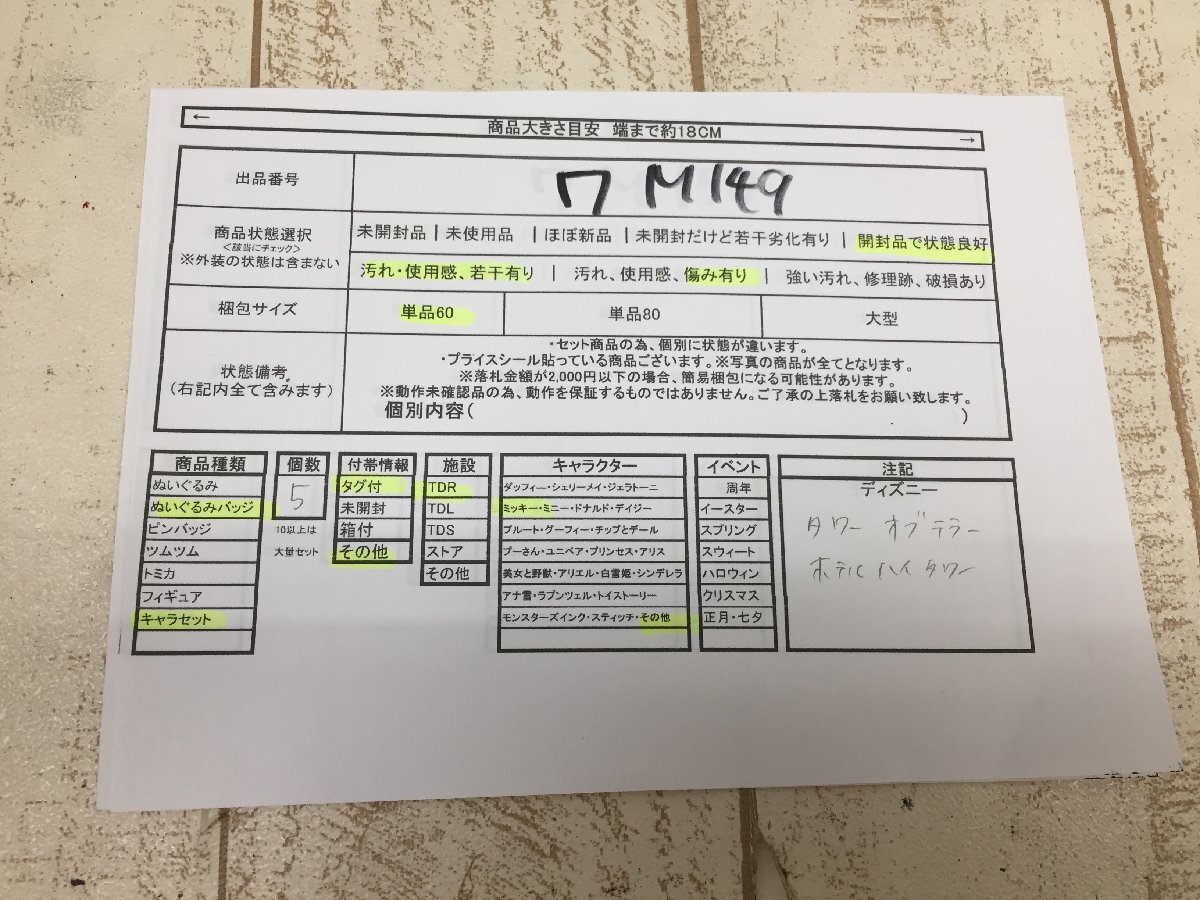 ← 商品大きさ目安 端まで約18CM →
出品番号 ワ M149
商品状態選択
<該当にチェック>
※外装の状態は含まない
未開封品 | 未使用品 | ほぼ新品 | 未開封だけど若干劣化有り | 開封品で状態良好
汚れ・使用感、若干有り | 汚れ、使用感、傷み有り | 強い汚れ、修理跡、破損あり
梱包サイズ 単品60 単品80 大型
状態備考
(右記内全て含みます)
・セット商品の為、個別に状態が違います。
・プライスシール貼っている商品ございます。※写真の商品が全てとなります。
※落札金額が2,000円以下の場合、簡易梱包になる可能性があります。
※動作未確認品の為、動作を保証するものではありません。ご了承の上落札をお願い致します。
個別内容( )
商品種類
ぬいぐるみ
ぬいぐるみバッジ
ピンバッジ
ツムツム
トミカ
フィギュア
キャラセット
個数
5
10以上は
大量セット
付帯情報
タグ付
未開封
箱付
その他
施設
TDR
TDL
TDS
ストア
その他
キャラクター
ダッフィー・シェリーメイ・ジェラトーニ
ミッキー・ミニー・ドナルド・デイジー
プルート・グーフィー・チップとデール
プーさん・ユニベア・プリンセス・アリス
美女と野獣・アリエル・白雪姫・シンデレラ
アナ雪・ラプンツェル・トイストーリー
モンスターズインク・スティッチ・その他
イベント
周年
イースター
スプリング
スウィート
ハロウィン
クリスマス
正月・七夕
注記
ディズニー
タワー オブ テラー
ホテル ハイ タワー